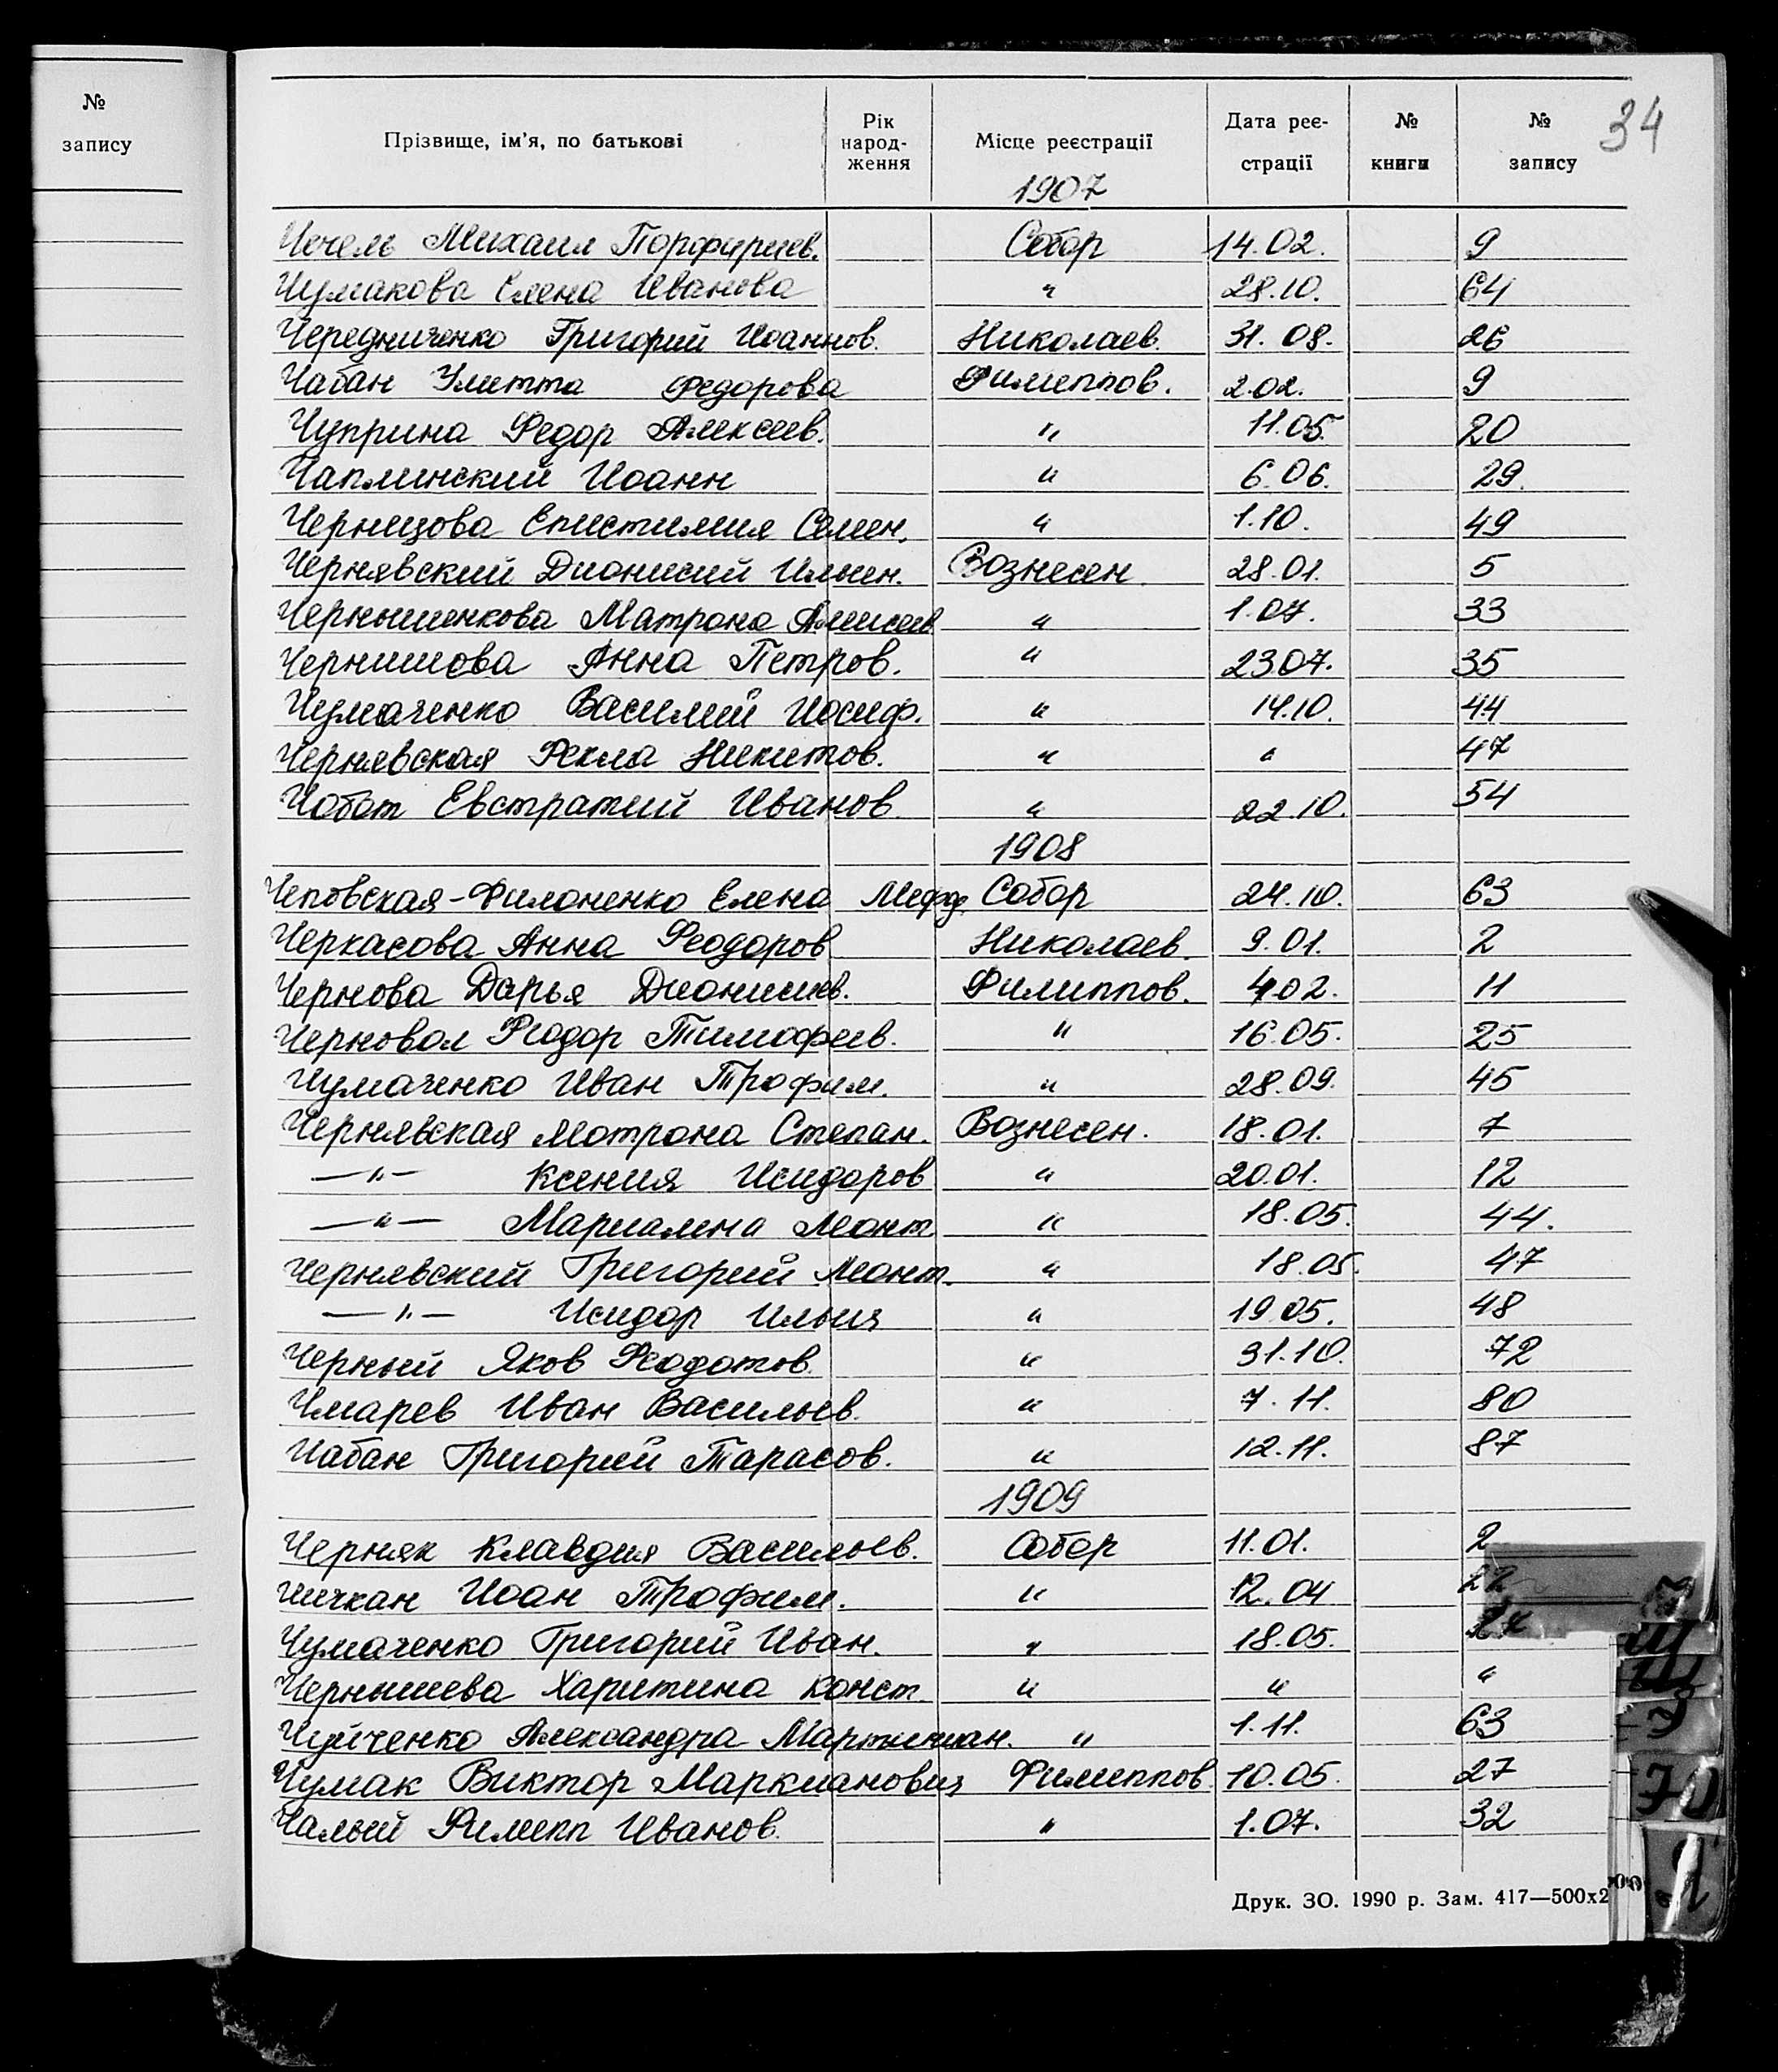 №
запису
34
Прізвище, ім'я, по батькові Рік народ-ження Місце реєстрації Дата реє-страції № книги № запису
1907
Чечель Михаил Порфириев. Собор 14.02. 9
Чумакова Елена Иванова " 28.10. 64
Чередниченко Григорий Иоаннов. Николаев. 31.08. 26
Чабан Улитта Федорова Филиппов. 2.02. 9
Чуприна Федор Алексеев. " 11.05. 20
Чаплинский Иоанн " 6.06. 29.
Чернецова Епистимия Семен. " 1.10. 49
Чернявский Дионисий Ильин. Вознесен. 28.01. 5
Чернышенкова Матрона Алексеев " 1.07. 33
Чернишова Анна Петров. " 23.07. 35
Чумаченко Василий Иосиф. " 14.10. 44
Чернявская Фекла Никитов. " " 47
Чобот Евстратий Иванов " 22.10. 54
1908
Чеповская-Филоненко Елена Мефод. Собор 24.10. 63
Черкасова Анна Феодоров Николаев. 9.01. 2
Чернова Дарья Дионисиев. Филиппов. 4.02. 11
Черновол Феодор Тимофеев. " 16.05. 25
Чумаченко Иван Трофим. " 28.09. 45
Чернявская Мотрона Степан. Вознесен. 18.01. 7
—"— Ксения Исидоров " 20.01. 12
—"— Мариамна Леонт " 18.05. 44.
Чернявский Григорий Леонт. " 18.05. 47
—"— Исидор Ильия " 19.05. 48
Черный Яков Феодотов. " 31.10. 72
Чмарев Иван Васильев. " 7.11. 80
Чабан Григорий Тарасов. " 12.11. 87
1909
Черняк Клавдия Васильев. Собор 11.01. 2
Чичкан Иоан Трофим. " 12.04 22
Чумаченко Григорий Иван. " 18.05.
Чернышева Харитина Конст. " " "
Чуйченко Александра Мартиниан. " 1.11. 63
Чумак Виктор Маркианович Филиппов. 10.05. 27
Чалый Филипп Иванов. " 1.07. 32
Друк. ЗО. 1990 р. Зам. 417—500х2
Ш
Щ
Э
Ю
Я